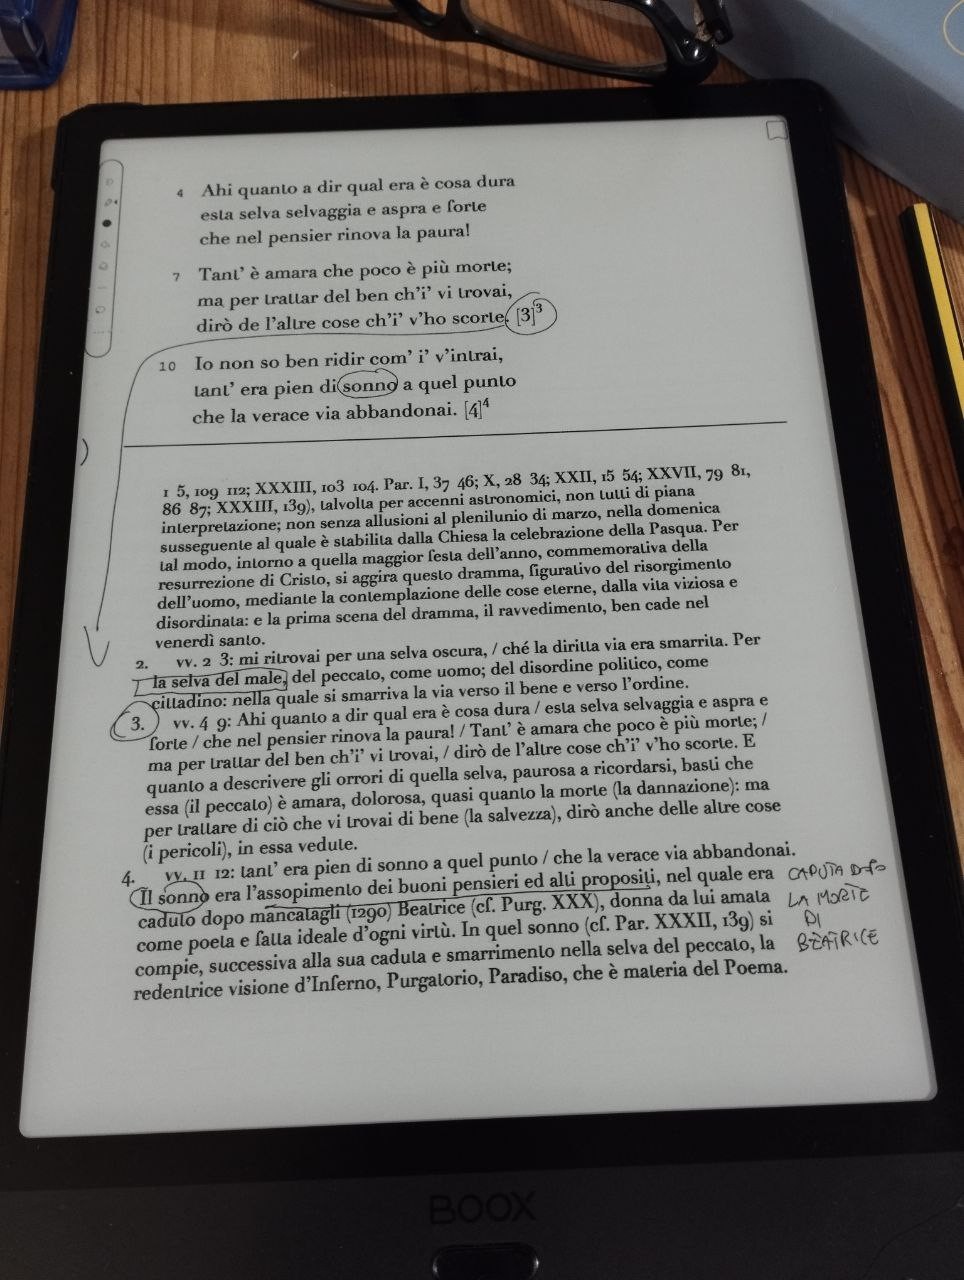 4 Ahi quanto a dir qual era è cosa dura
esta selva selvaggia e aspra e forte
che nel pensier rinova la paura!
7 Tant' è amara che poco è più morte;
ma per trattar del ben ch'i' vi trovai,
dirò de l'altre cose ch'i' v'ho scorte. [3]3
10 Io non so ben ridir com' i' v'intrai,
tant' era pien di sonno a quel punto
che la verace via abbandonai. [4]4
1 5, 109 112; XXXIII, 103 104. Par. I, 37 46; X, 28 34; XXII, 15 54; XXVII, 79 81,
86 87; XXXIII, 139), talvolta per accenni astronomici, non tutti di piana
interpretazione; non senza allusioni al plenilunio di marzo, nella domenica
susseguente al quale è stabilita dalla Chiesa la celebrazione della Pasqua. Per
tal modo, intorno a quella maggior festa dell'anno, commemorativa della
resurrezione di Cristo, si aggira questo dramma, figurativo del risorgimento
dell'uomo, mediante la contemplazione delle cose eterne, dalla vita viziosa e
disordinata: e la prima scena del dramma, il ravvedimento, ben cade nel
venerdì santo.
2. vv. 2 3: mi ritrovai per una selva oscura, / ché la diritta via era smarrita. Per
la selva del male, del peccato, come uomo; del disordine politico, come
cittadino: nella quale si smarriva la via verso il bene e verso l'ordine.
3. vv. 4 9: Ahi quanto a dir qual era è cosa dura / esta selva selvaggia e aspra e
forte / che nel pensier rinova la paura! / Tant' è amara che poco è più morte; /
ma per trattar del ben ch'i' vi trovai, / dirò de l'altre cose ch'i' v'ho scorte. E
quanto a descrivere gli orrori di quella selva, paurosa a ricordarsi, basti che
essa (il peccato) è amara, dolorosa, quasi quanto la morte (la dannazione): ma
per trattare di ciò che vi trovai di bene (la salvezza), dirò anche delle altre cose
(i pericoli), in essa vedute.
4. vv. 11 12: tant' era pien di sonno a quel punto / che la verace via abbandonai.
Il sonno era l'assopimento dei buoni pensieri ed alti propositi, nel quale era
caduto dopo mancatagli (1290) Beatrice (cf. Purg. XXX), donna da lui amata
come poeta e fatta ideale d'ogni virtù. In quel sonno (cf. Par. XXXII, 139) si
compie, successiva alla sua caduta e smarrimento nella selva del peccato, la
redentrice visione d'Inferno, Purgatorio, Paradiso, che è materia del Poema.
CADUTA DOPO
LA MORTE
DI
BEATRICE
BOOX